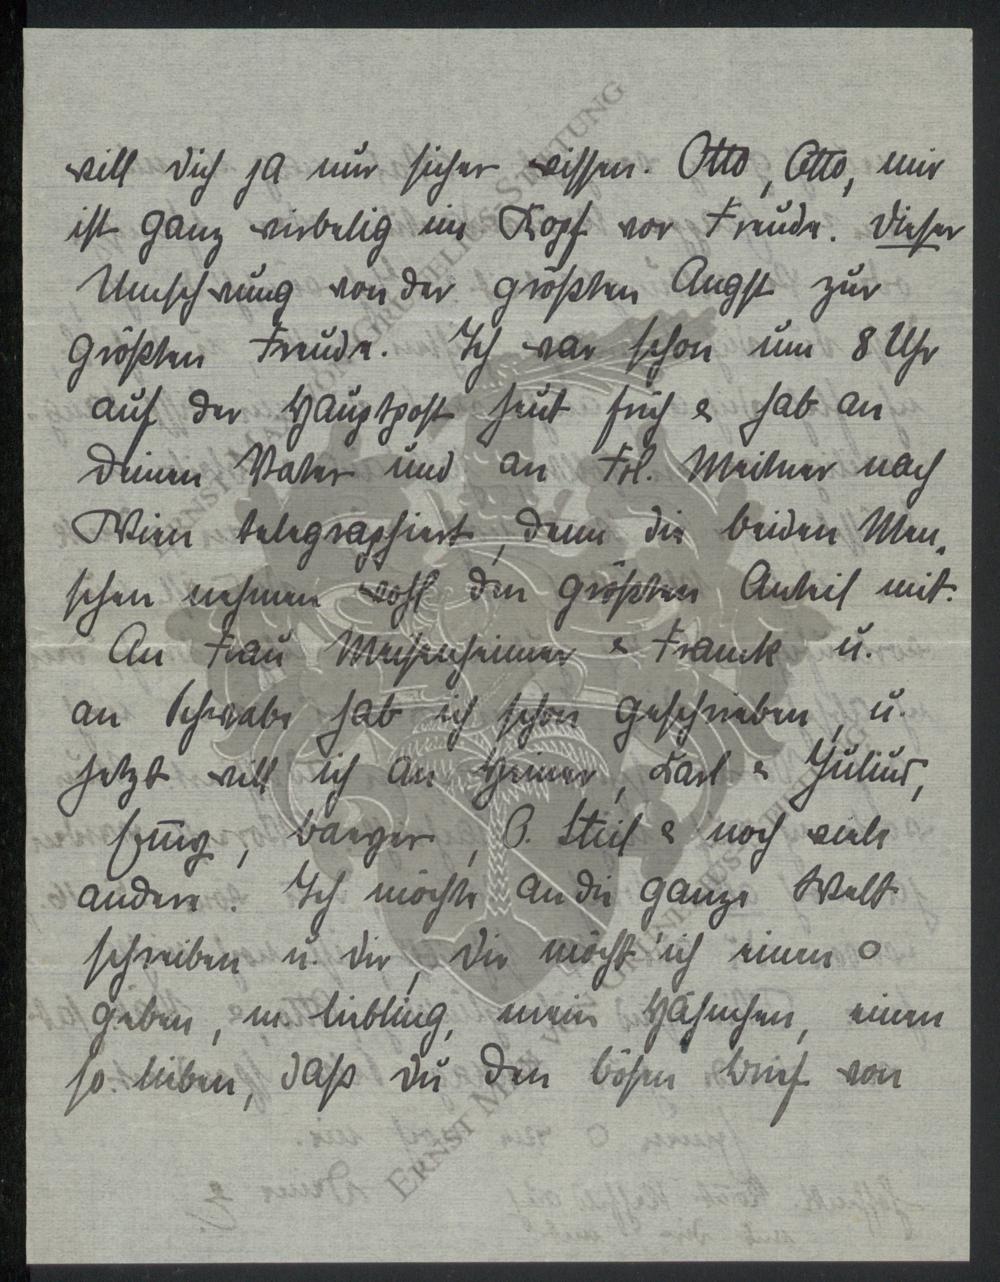 will dich ja nur sicher wissen. Otto, Otto, mir
ist ganz wirbelig im Kopf vor Freude. Dieser
Umschwung von der größten Angst zur
größten Freude. Ich war schon um 8 Uhr
auf der Hauptpost heut früh & hab an
Deinen Vater und an Frl. Meitner nach
Wien telegraphiert, denn die beiden Men-
schen nehmen wohl den größten Anteil mit.
An Frau Meisenheimer & Franck u.
an Schwabe hab ich schon geschrieben, u.
jetzt will ich an Heiner, Karl & Julius,
baeyer, O. Stich & noch viele
andere. Ich möchte an die ganze Welt
schreiben u. dir, dir möcht ich einen O
geben, m liebling, mein Hähnchen, einen
so lieben, daß du den bösen brief von
ERNST MAX VON GRUELIUS-STIFTUNG
ERNST MAX VON GRUNELIUS-STIFTUNG